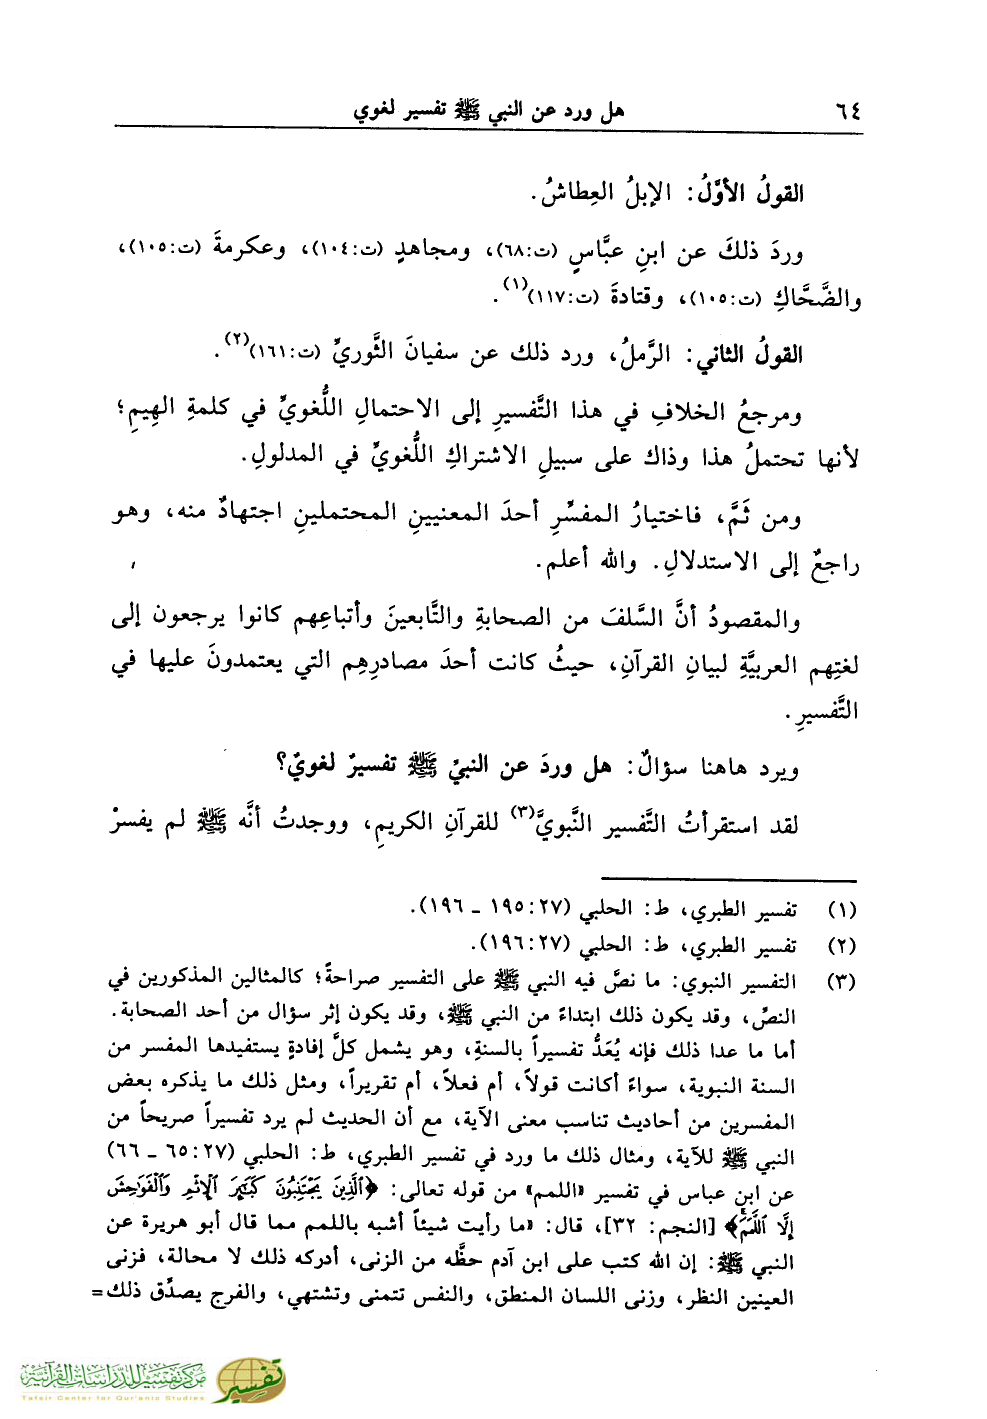 ٦٤ هل ورد عن النبي ﷺ تفسير لغوي
القولُ الأوَّلُ: الإبلُ العِطاشُ.
وردَ ذلكَ عن ابنِ عبَّاسٍ (ت:٦٨)، ومجاهدٍ (ت:١٠٤)، وعكرمةَ (ت:١٠٥)،
والضَّحَّاكِ (ت:١٠٥)، وقتادةَ (ت:١١٧)(١).
القولُ الثاني: الرَّملُ، ورد ذلك عن سفيانَ الثَّوريِّ (ت:١٦١)(٢).
ومرجعُ الخلافِ في هذا التَّفسيرِ إلى الاحتمالِ اللُّغويِّ في كلمةِ الهِيمِ؛
لأنها تحتملُ هذا وذاك على سبيلِ الاشتراكِ اللُّغويِّ في المدلولِ.
ومن ثَمَّ، فاختيارُ المفسِّرِ أحدَ المعنيينِ المحتملينِ اجتهادٌ منه، وهو
راجعٌ إلى الاستدلالِ. والله أعلم.
والمقصودُ أنَّ السَّلفَ من الصحابةِ والتَّابعينَ وأتباعِهم كانوا يرجعون إلى
لغتِهم العربيَّةِ لبيانِ القرآنِ، حيثُ كانت أحدَ مصادرِهِم التي يعتمدونَ عليها في
التَّفسيرِ.
ويرد هاهنا سؤالٌ: هل وردَ عن النبيِّ ﷺ تفسيرٌ لغويٌ؟
لقد استقرأتُ التَّفسير النَّبويَّ(٣) للقرآنِ الكريمِ، ووجدتُ أنَّه ﷺ لم يفسرْ
(١) تفسير الطبري، ط: الحلبي (٢٧:١٩٥ ـ ١٩٦).
(٢) تفسير الطبري، ط: الحلبي (٢٧:١٩٦).
(٣) التفسير النبوي: ما نصَّ فيه النبي ﷺ على التفسير صراحةً؛ كالمثالين المذكورين في
النصِّ، وقد يكون ذلك ابتداءً من النبي ﷺ، وقد يكون إثر سؤال من أحد الصحابة.
أما ما عدا ذلك فإنه يُعَدُّ تفسيراً بالسنةِ، وهو يشمل كلَّ إفادةٍ يستفيدها المفسر من
السنة النبوية، سواءً أكانت قولاً، أم فعلاً، أم تقريراً، ومثل ذلك ما يذكره بعض
المفسرين من أحاديث تناسب معنى الآية، مع أن الحديث لم يرد تفسيراً صريحاً من
النبي ﷺ للآية، ومثال ذلك ما ورد في تفسير الطبري، ط: الحلبي (٢٧:٦٥ ـ ٦٦)
عن ابن عباس في تفسير «اللمم» من قوله تعالى: ﴿ٱلَّذِينَ يَجْتَنِبُونَ كَبَٰٓئِرَ ٱلْإِثْمِ وَٱلْفَوَٰحِشَ
إِلَّا ٱللَّمَمَ﴾ [النجم: ٣٢]، قال: «ما رأيت شيئاً أشبه باللمم مما قال أبو هريرة عن
النبي ﷺ: إن الله كتب على ابن آدم حظَّه من الزنى، أدركه ذلك لا محالة، فزنى
العينين النظر، وزنى اللسان المنطق، والنفس تتمنى وتشتهي، والفرج يصدِّق ذلك=
مركز تفسير للدراسات القرآنية
Tafsir Center for Qur'anic Studies
تفسير